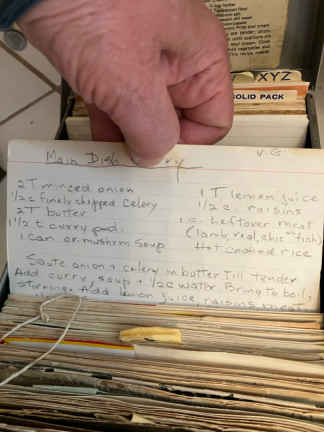 XYZ
SOLID PACK
Main Dish Curry V. G.
2 T minced onion
1/2 c finely chipped Celery
2 T butter
1/2 t curry pwd.
1 can cr mushrm Soup
1 T lemon juice
1/2 c raisins
1 c leftover meat
Hot cooked rice
Saute onion + celery in butter till tender
Add curry, soup + 1/2 c water Bring to boil,
stirring. Add lemon juice, raisins, meat